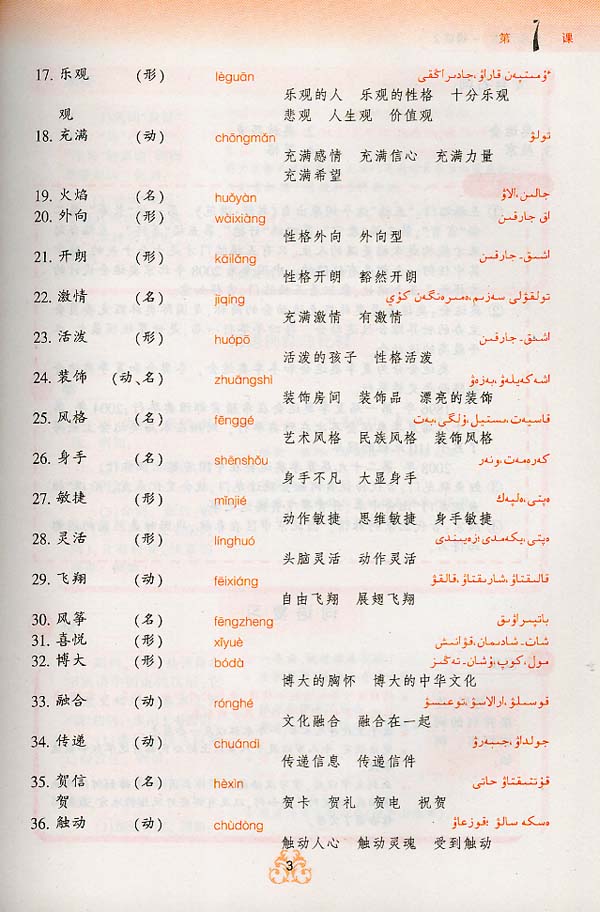 第 1 课
17. 乐观 (形) lèguān ءۇمىتپەن قاراۋ، جادىراڭقى
乐观的人 乐观的性格 十分乐观
观 悲观 人生观 价值观
18. 充满 (动) chōngmǎn تولۋ
充满感情 充满信心 充满力量
充满希望
19. 火焰 (名) huǒyàn جالىن، الاۋ
20. 外向 (形) wàixiàng اق جارقىن
性格外向 外向型
21. 开朗 (形) kāilǎng اشىق-جارقىن
性格开朗 豁然开朗
22. 激情 (名) jīqíng تولقۋلى سەزىم،
充满激情 有激情
23. 活泼 (形) huópō اشىق-جارقىن
活泼的孩子 性格活泼
24. 装饰 (动、名) zhuāngshì اشەكەيلەۋ، بەزەۋ
装饰房间 装饰品 漂亮的装饰
25. 风格 (名) fēnggé قاسيەت،
艺术风格 民族风格 装饰风格
26. 身手 (名) shēnshǒu كەرەمەت، ونەر
身手不凡 大显身手
27. 敏捷 (形) mǐnjié ەپتى،
动作敏捷 思维敏捷 身手敏捷
28. 灵活 (形) línghuó ەپتى، يكەمدى،
头脑灵活 动作灵活
29. 飞翔 (动) fēixiáng قالىقتاۋ، شارىقتاۋ،
自由飞翔 展翅飞翔
30. 风筝 (名) fēngzheng
31. 喜悦 (形) xǐyuè شات-شادىمان، قۋانىش
32. 博大 (形) bódà مول، كوپ، ۇشان-تەڭىز
博大的胸怀 博大的中华文化
33. 融合 (动) rónghé قوسىلۋ، ارالاسۋ، توعىسۋ
文化融合 融合在一起
34. 传递 (动) chuándì جولداۋ، جىبەرۋ
传递信息 传递信件
35. 贺信 (名) hèxìn قۇتتىقتاۋ حاتى
贺 贺卡 贺礼 贺电 祝贺
36. 触动 (动) chùdòng ەسكە سالۋ، قوزعاۋ
触动人心 触动灵魂 受到触动
3